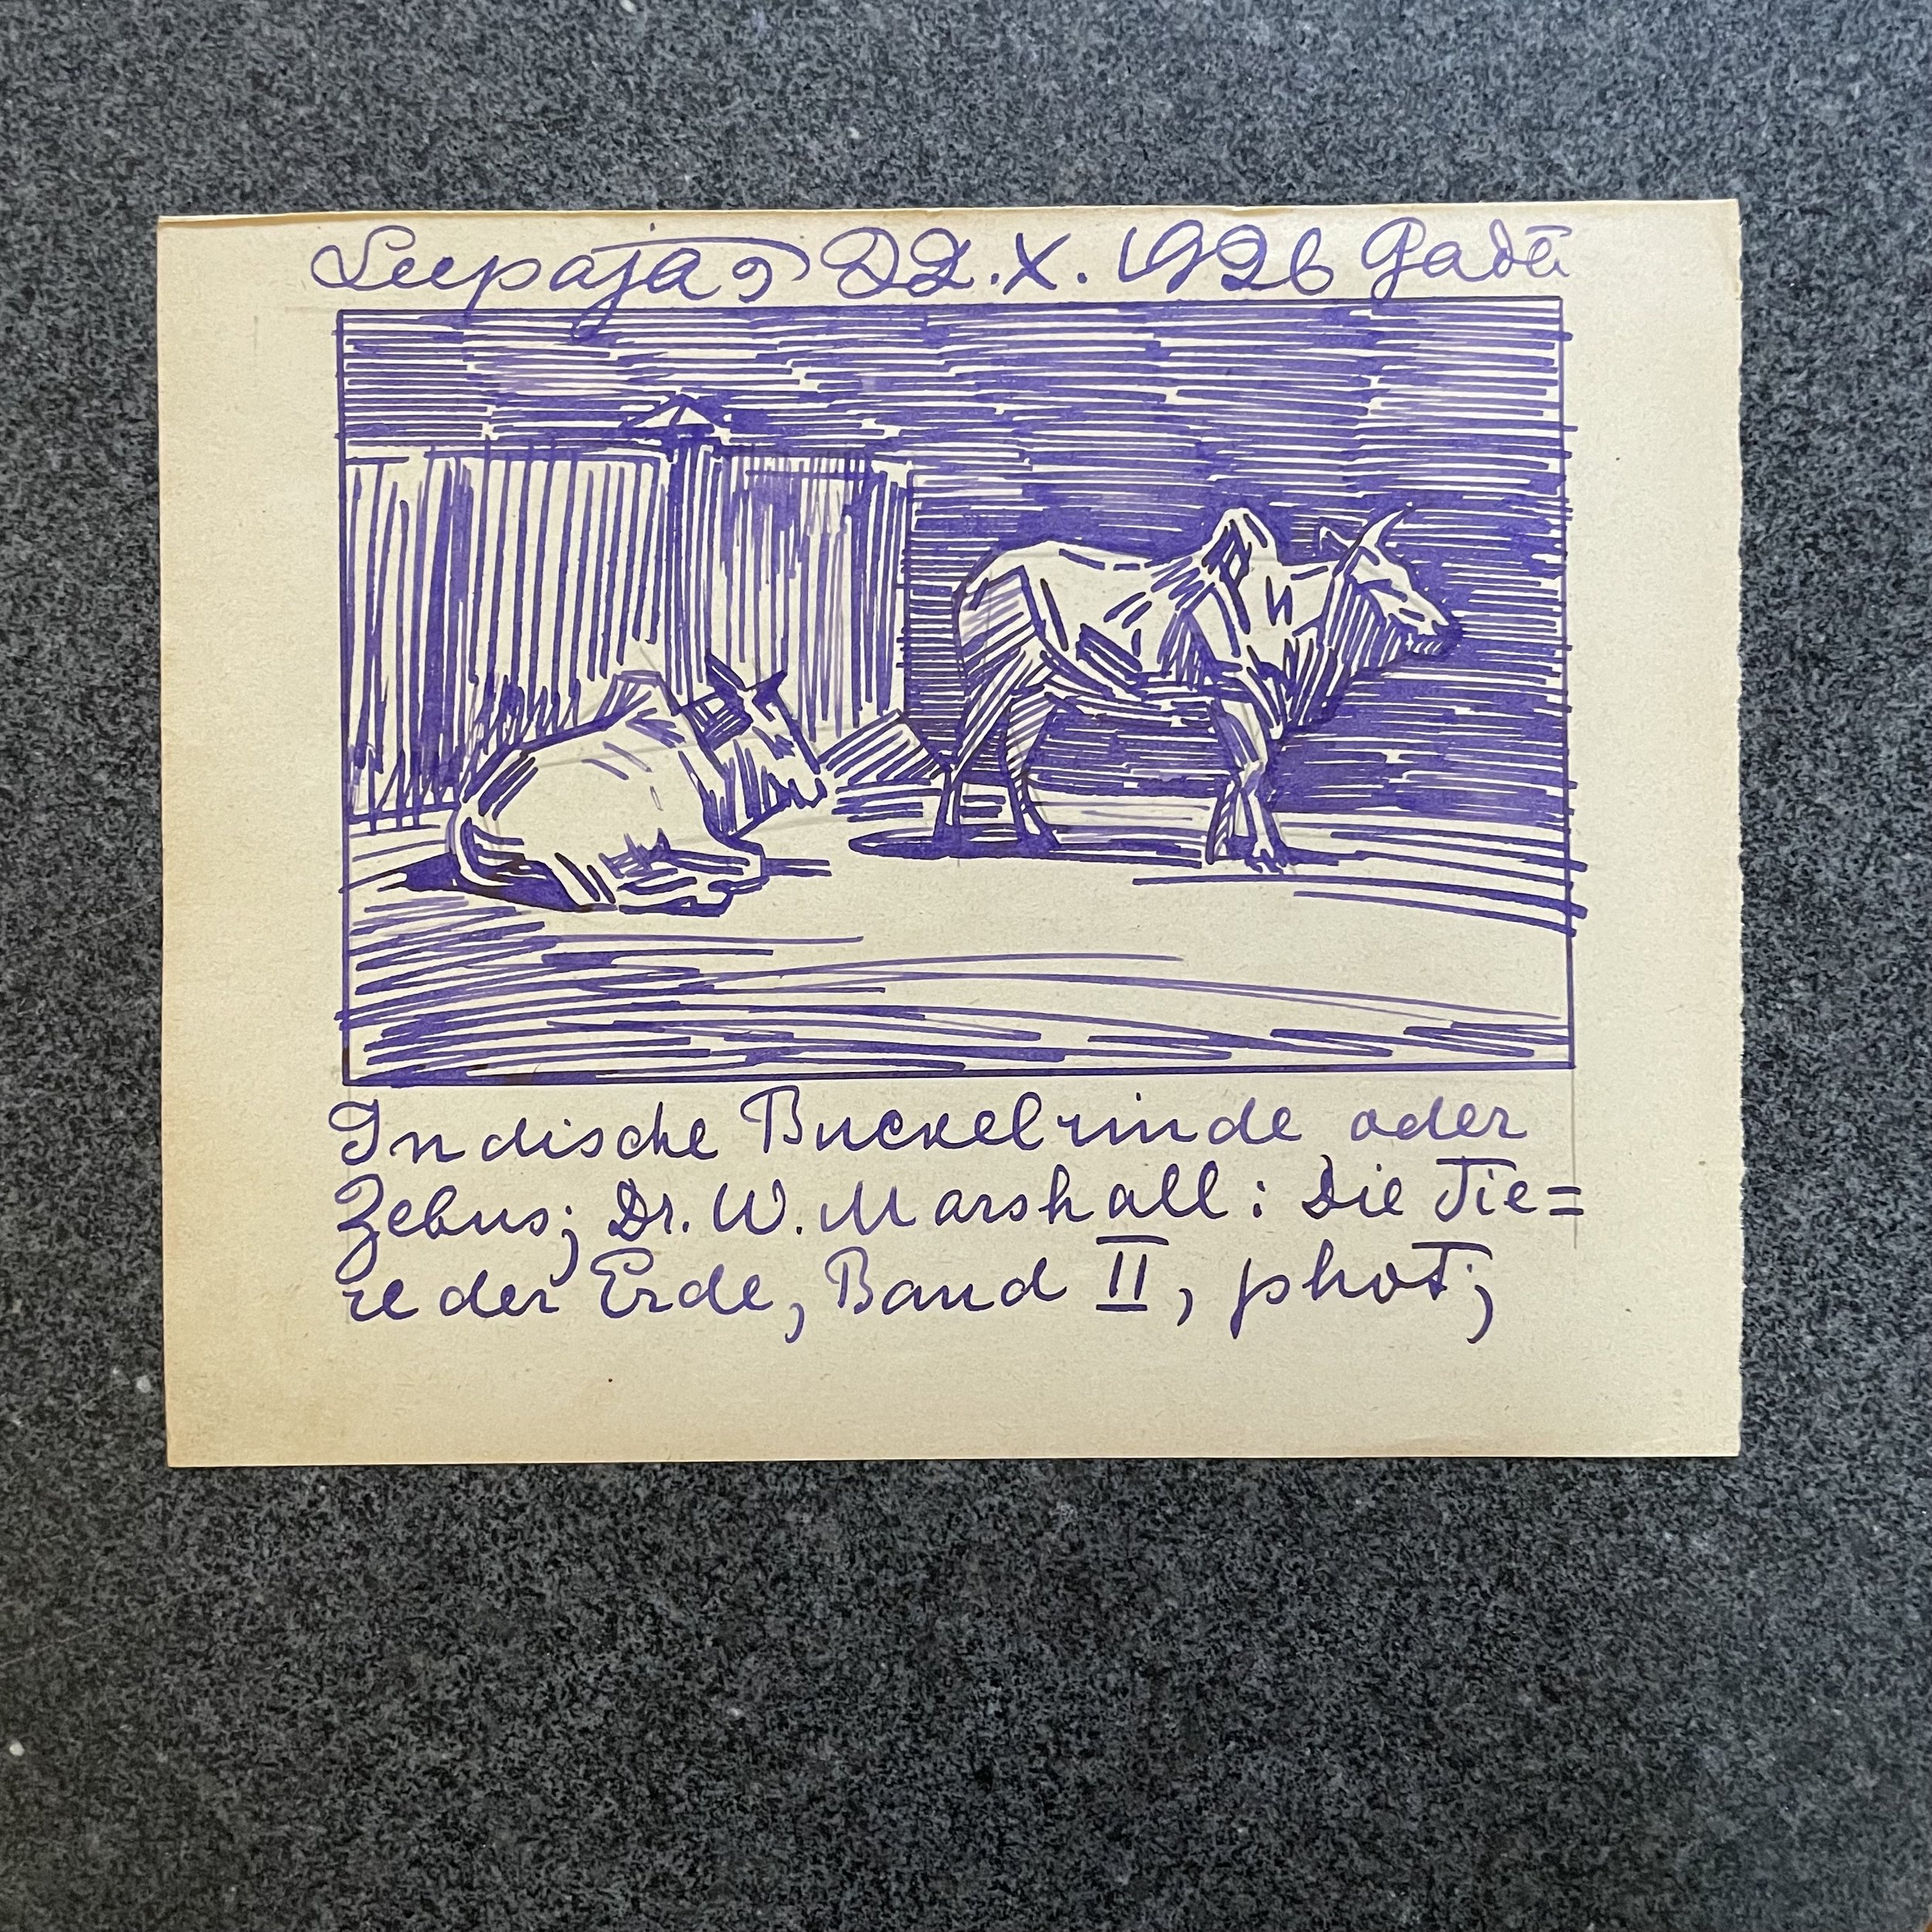 Leepaja, 22. X. 1926 Gadā
Indische Buckelrinde oder
Zebus; Dr. W. Marshall: Die Tie=
re der Erde, Band II, phot;